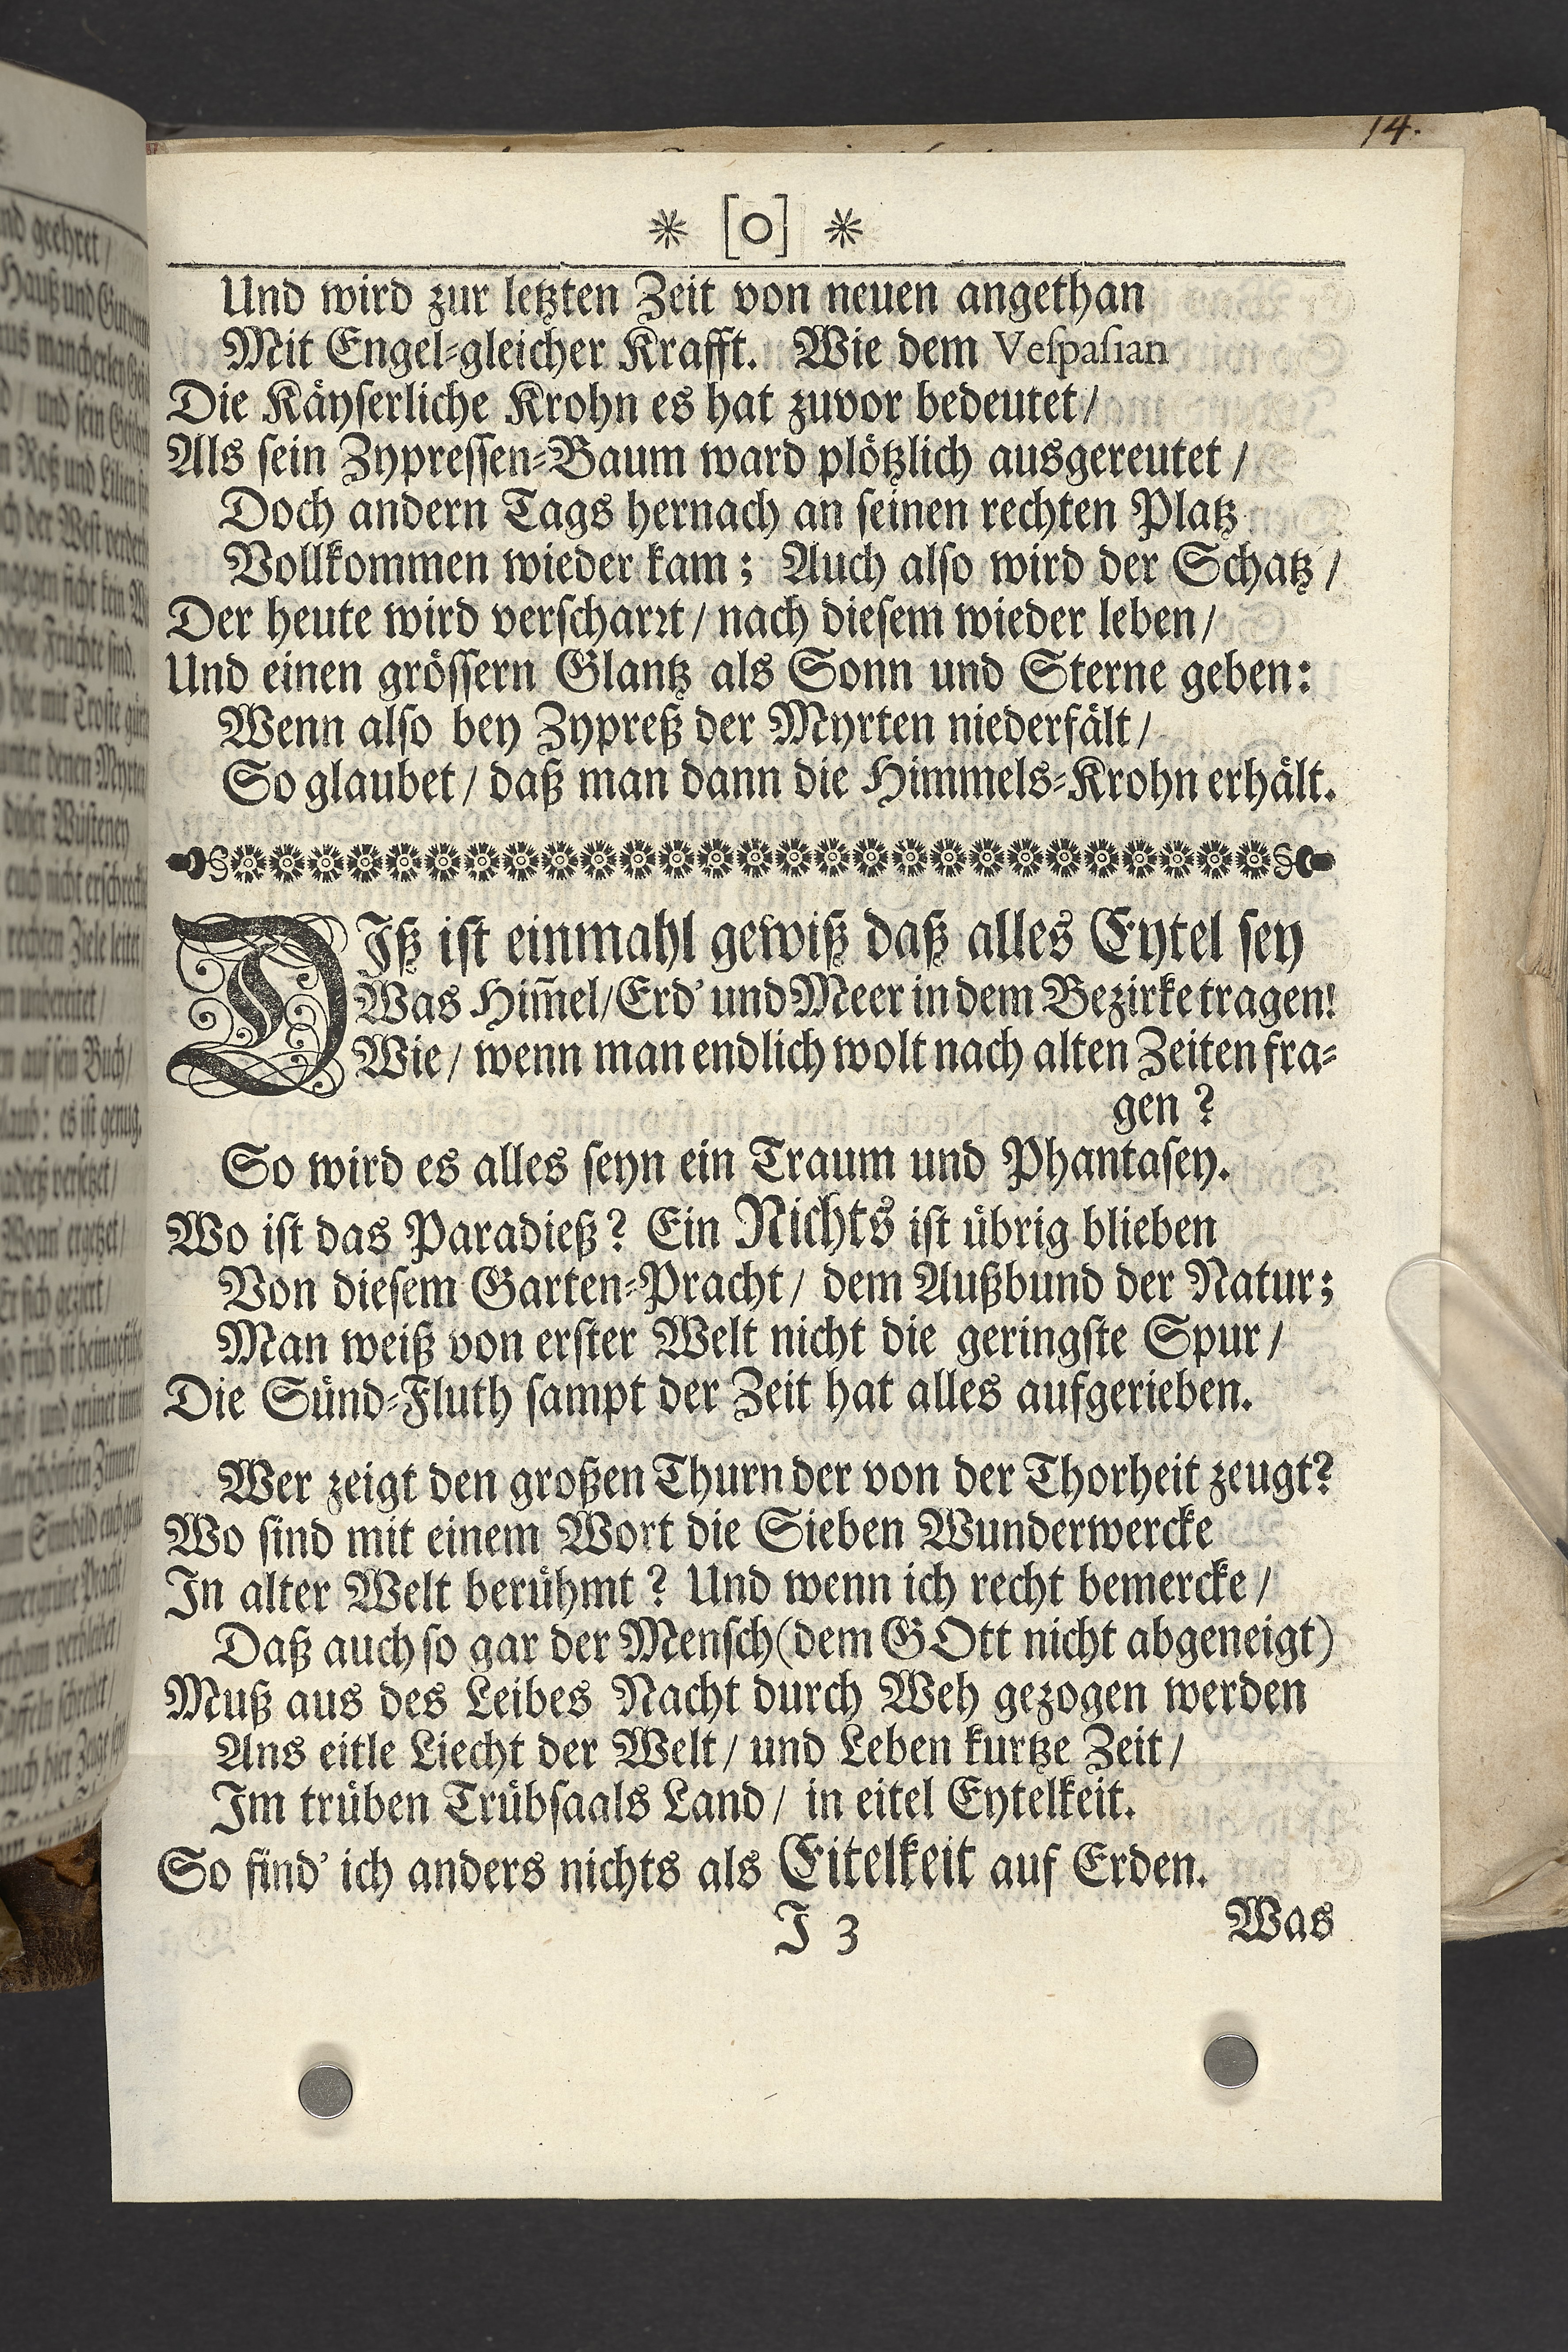 14.
* [O] *
Und wird zur letzten Zeit von neuen angethan
Mit Engel-gleicher Krafft. Wie dem Veſpaſian
Die Käyſerliche Krohn es hat zuvor bedeutet/
Als ſein Zypreſſen-Baum ward plötzlich ausgereutet/
Doch andern Tags hernach an ſeinen rechten Platz
Vollkommen wieder kam; Auch alſo wird der Schatz/
Der heute wird verſcharꝛt/ nach dieſem wieder leben/
Und einen gröſſern Glantz als Sonn und Sterne geben:
Wenn alſo bey Zypreß der Myrten niederfält/
So glaubet/ daß man dann die Himmels-Krohn erhält.
DIß iſt einmahl gewiß daß alles Eytel ſey
Was Him̄el/Erd' und Meer in dem Bezirke tragen!
Wie/ wenn man endlich wolt nach alten Zeiten fra-
gen?
So wird es alles ſeyn ein Traum und Phantaſey.
Wo iſt das Paradieß? Ein Nichts iſt übrig blieben
Von dieſem Garten-Pracht/ dem Außbund der Natur;
Man weiß von erſter Welt nicht die geringſte Spur/
Die Sünd-Fluth ſampt der Zeit hat alles aufgerieben.
Wer zeigt den großen Thurn der von der Thorheit zeugt?
Wo ſind mit einem Wort die Sieben Wunderwercke
In alter Welt berühmt? Und wenn ich recht bemercke/
Daß auch ſo gar der Menſch (dem GOtt nicht abgeneigt)
Muß aus des Leibes Nacht durch Weh gezogen werden
Ans eitle Liecht der Welt/ und Leben kurtze Zeit/
Im trüben Trübſaals Land/ in eitel Eytelkeit.
So find' ich anders nichts als Eitelkeit auf Erden.
J 3
Was